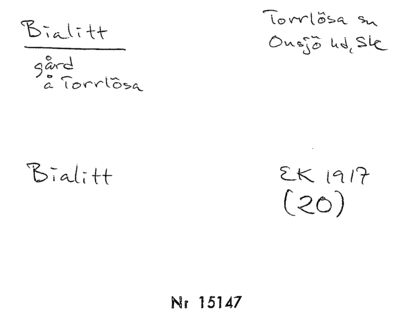 Bialitt
Torrlösa sn
Onsjö hd, Sk
gård
å Torrlösa
Bialitt
EK 1917
(20)
Nr 15147